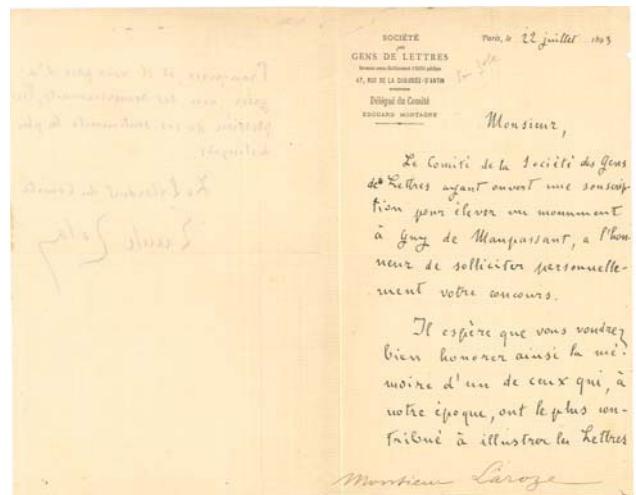 SOCIÉTÉ
DES
GENS DE LETTRES
47, RUE DE LA CHAUSSÉE-D'ANTIN
Délégué du Comité
EDOUARD MONTAGNE
Paris, le 22 juillet 1893
Monsieur,
Le Comité de la Société des Gens
de Lettres ayant ouvert une souscrip-
tion pour élever un monument
à Guy de Maupassant, a l'hon-
neur de solliciter personnelle-
ment votre concours.
Il espère que vous voudrez
bien honorer ainsi la mé-
moire d'un de ceux qui, à
notre époque, ont le plus con-
tribué à illustrer les Lettres
Monsieur Laroze
Le Président du Comité
Emile Zola